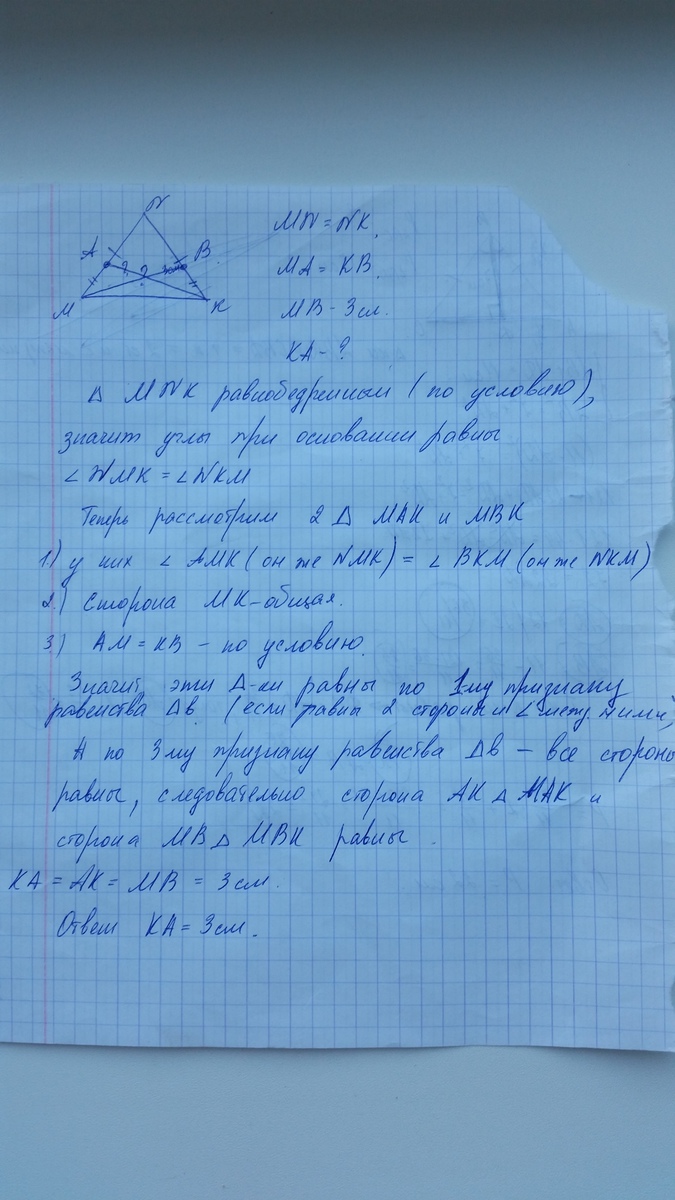 N
A
B
? ? 3см
M
K
MN = NK.
MA = KB.
MB - 3см.
KA - ?
Δ MNK равнобедренный (по условию),
значит углы при основании равны
∠ NMK = ∠ NKM
Теперь рассмотрим 2 Δ MAK и MBK
1) у них ∠ AMK (он же NMK) = ∠ BKM (он же NKM)
2.) Сторона MK - общая.
3) AM = KB - по условию.
Значит, эти Δ-ки равны по 1-му признаку
равенства Δв (если равны 2 стороны и ∠ между ними),
А по 3му признаку равенства Δв - все стороны
равны, следовательно сторона AK Δ MAK и
сторона MB Δ MBK равны.
KA = AK = MB = 3см.
Ответ KA = 3см.